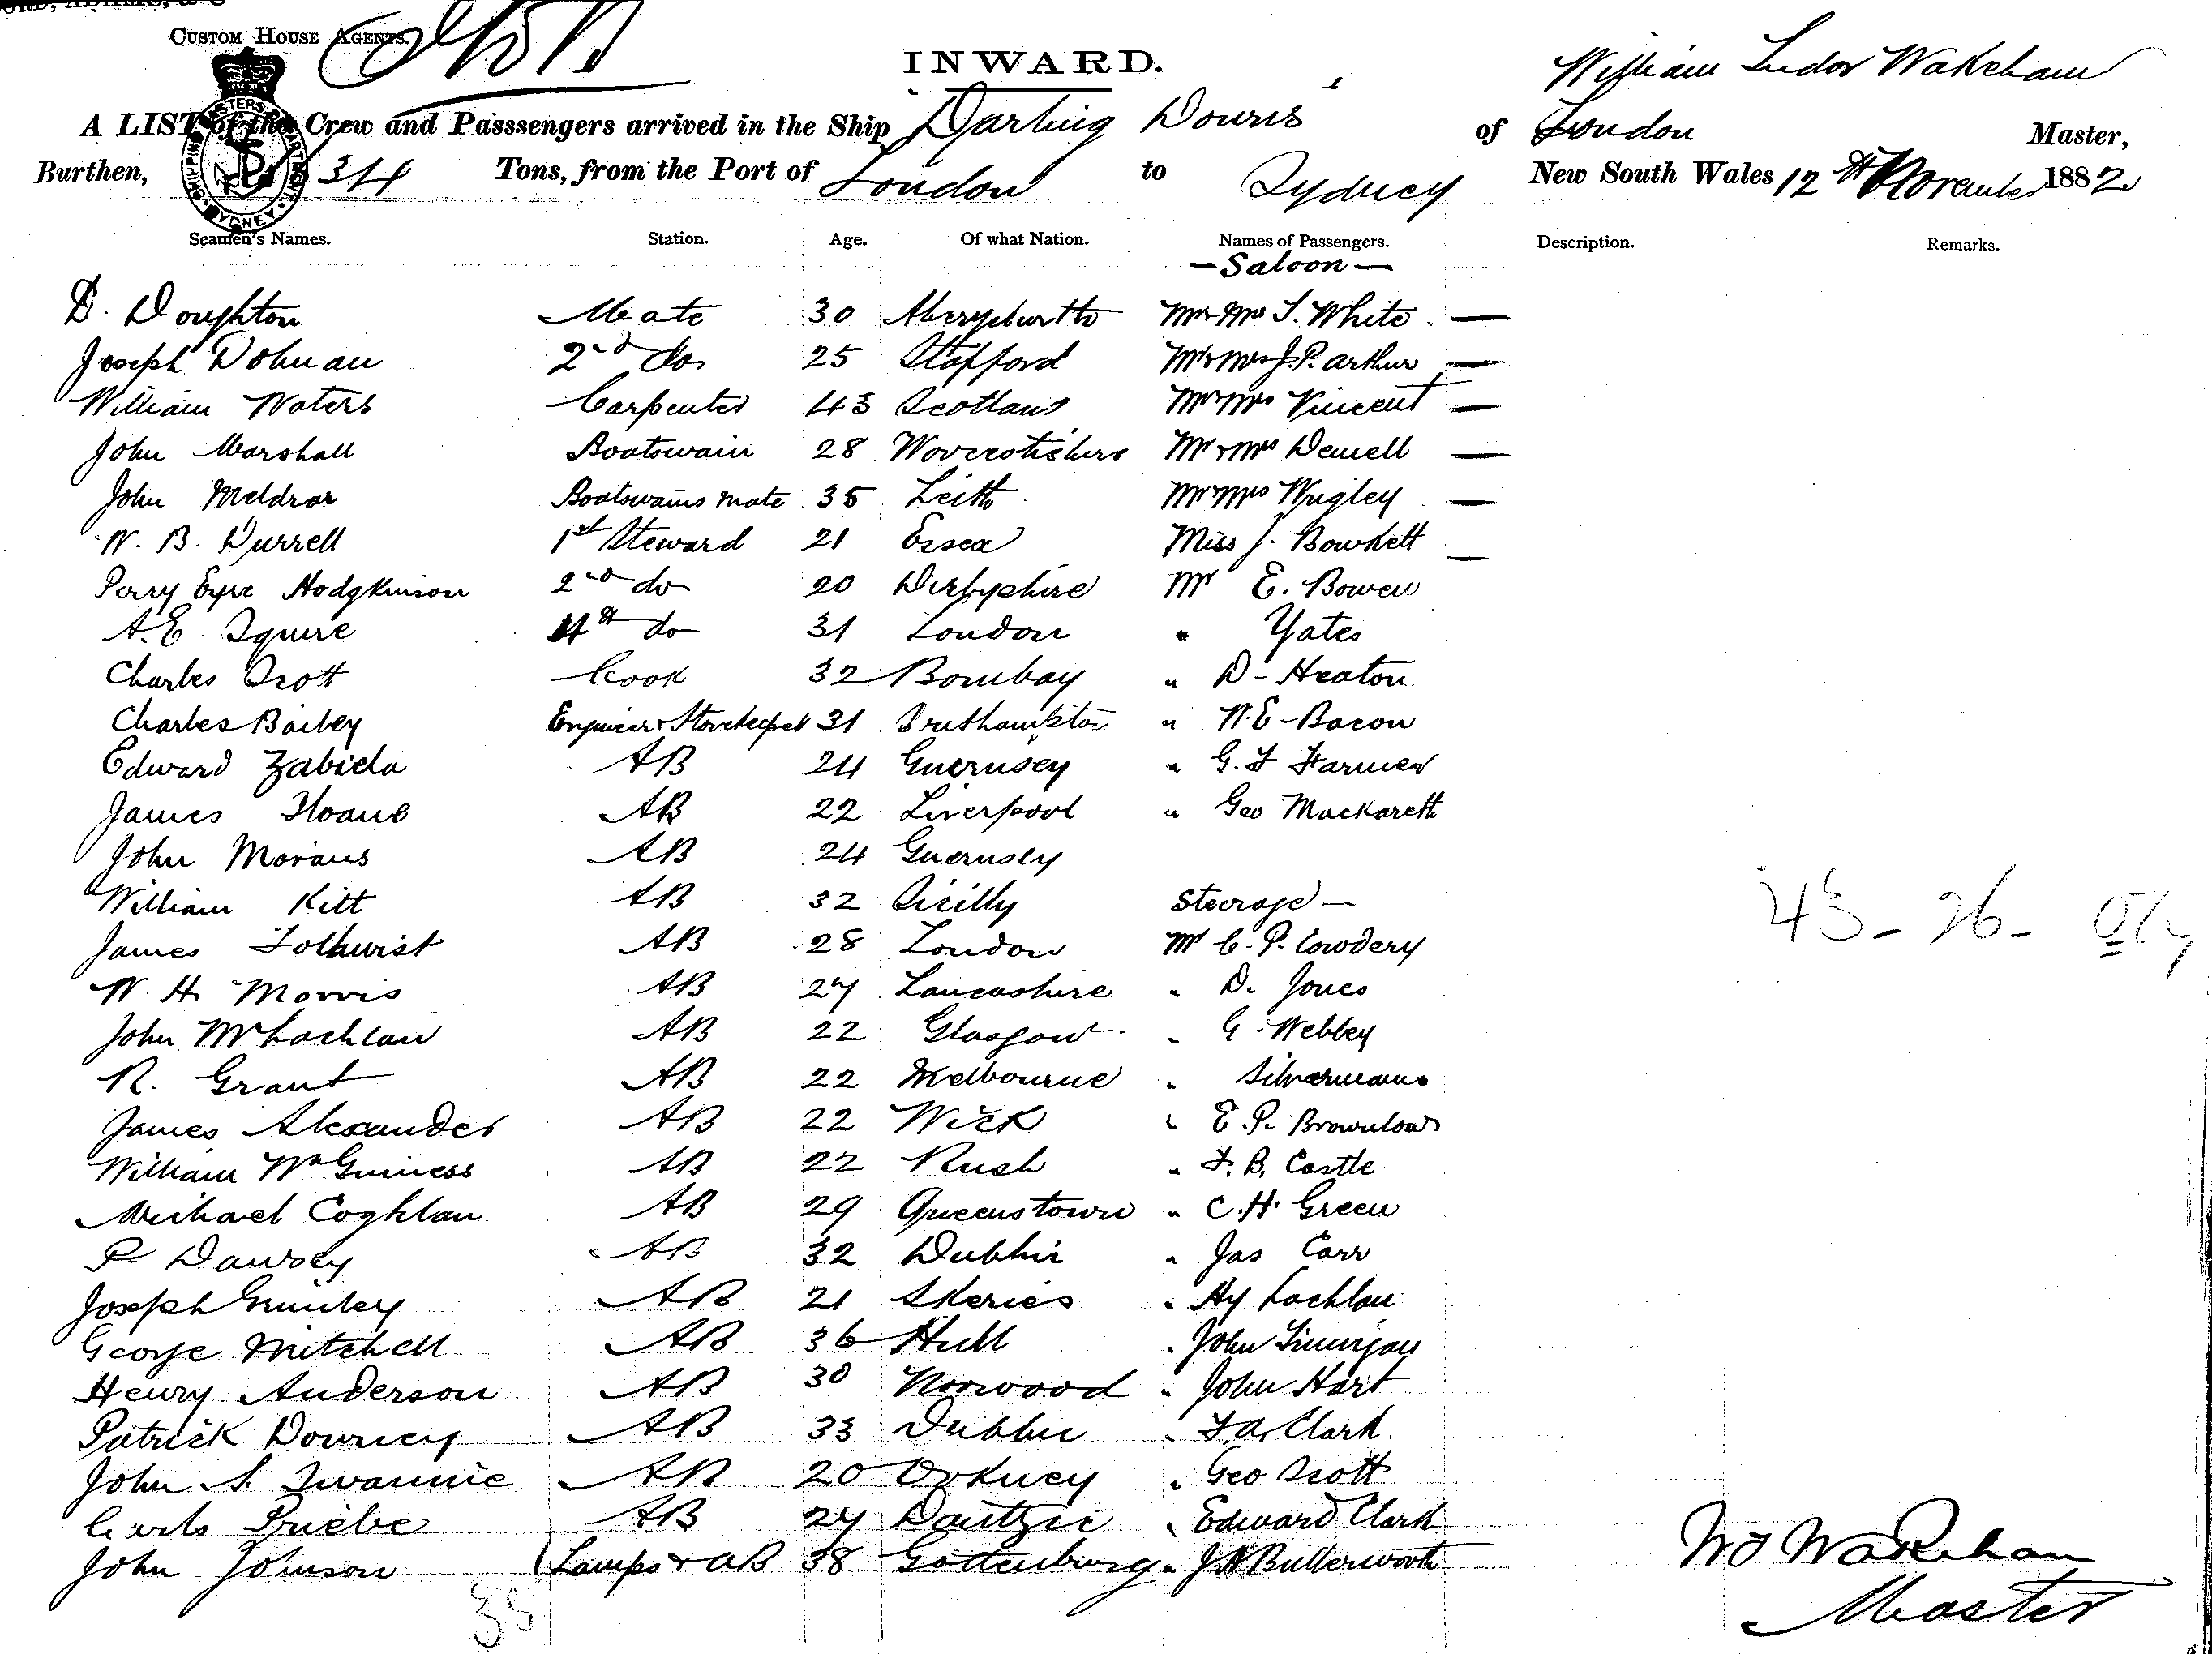 CUSTOM HOUSE AGENTS.
INWARD.
William Tudor Wakeham
A LIST of the Crew and Passsengers arrived in the Ship "Darling Downs" of London Master,
Burthen, Tons, from the Port of London to Sydney New South Wales 12th November 1882
SHIPPING MASTERS DEPARTMENT SYDNEY
Seamen's Names. Station. Age. Of what Nation. Names of Passengers. Description. Remarks.
— Saloon —
D. Doughton Mate 30 Mr & Mrs T. White —
Joseph 2nd do 25 Stafford Mr & Mrs J. P. Arthur —
William Waters Carpenter 43 Scotland Mr & Mrs Vincent —
John Marshall Boatswain 28 Worcestishire Mr & Mrs —
John Meldrar Boatswains mate 35 Leith Mr & Mrs Wrigley —
W. B. Durrell 1st Steward 21 Essex Miss J. Bowkett —
Percy Eyre Hodgkinson 2nd do 20 Derbyshire Mr E. Bowen
A. E. Squire 4th do 31 London " Yates
Charles Scott Cook 32 Bombay " D - Heaton
Charles Bailey Engineer & Storekeeper 31 Southampton " W. E - Bacon
Edward Zabiela AB 24 Guernsey " G. F Farmer
James Sloane AB 22 Liverpool " Geo Mackareth
John AB 24 Guernsey
William Kitt AB 32 Scilly Steerage —
James Tolhurst AB 28 London Mr C. P. Cowdery
W. H. Morris AB 27 Lancashire " D. Jones
John McLachlan AB 22 Glasgow " G. Webbey
R. Grant AB 22 Melbourne " Silvermann
James Alexander AB 22 Wick " E. P. Brownlow
William McGuiness AB 22 Rush " F. B. Castle
Michael Coghlan AB 29 Queenstown " C. H. Green
P Dawsey AB 32 Dublin " Jas Carr
Joseph Grimley AB 21 Skeries " Hy Lachlan
George Mitchell AB 36 Hull " John Finnigan
Henry Anderson AB 30 Norwood " John Hart
Patrick Downey AB 33 Dublin " F. A. Clark
John S. Swannie AB 20 Orkney " Geo Scott
Carls Priebe AB 24 Dantzic " Edward Clark
John Johnson Lamps & AB 38 Gottenburg " J. H Butterworth
43 - 26 -
38
W T Wakeham
Master